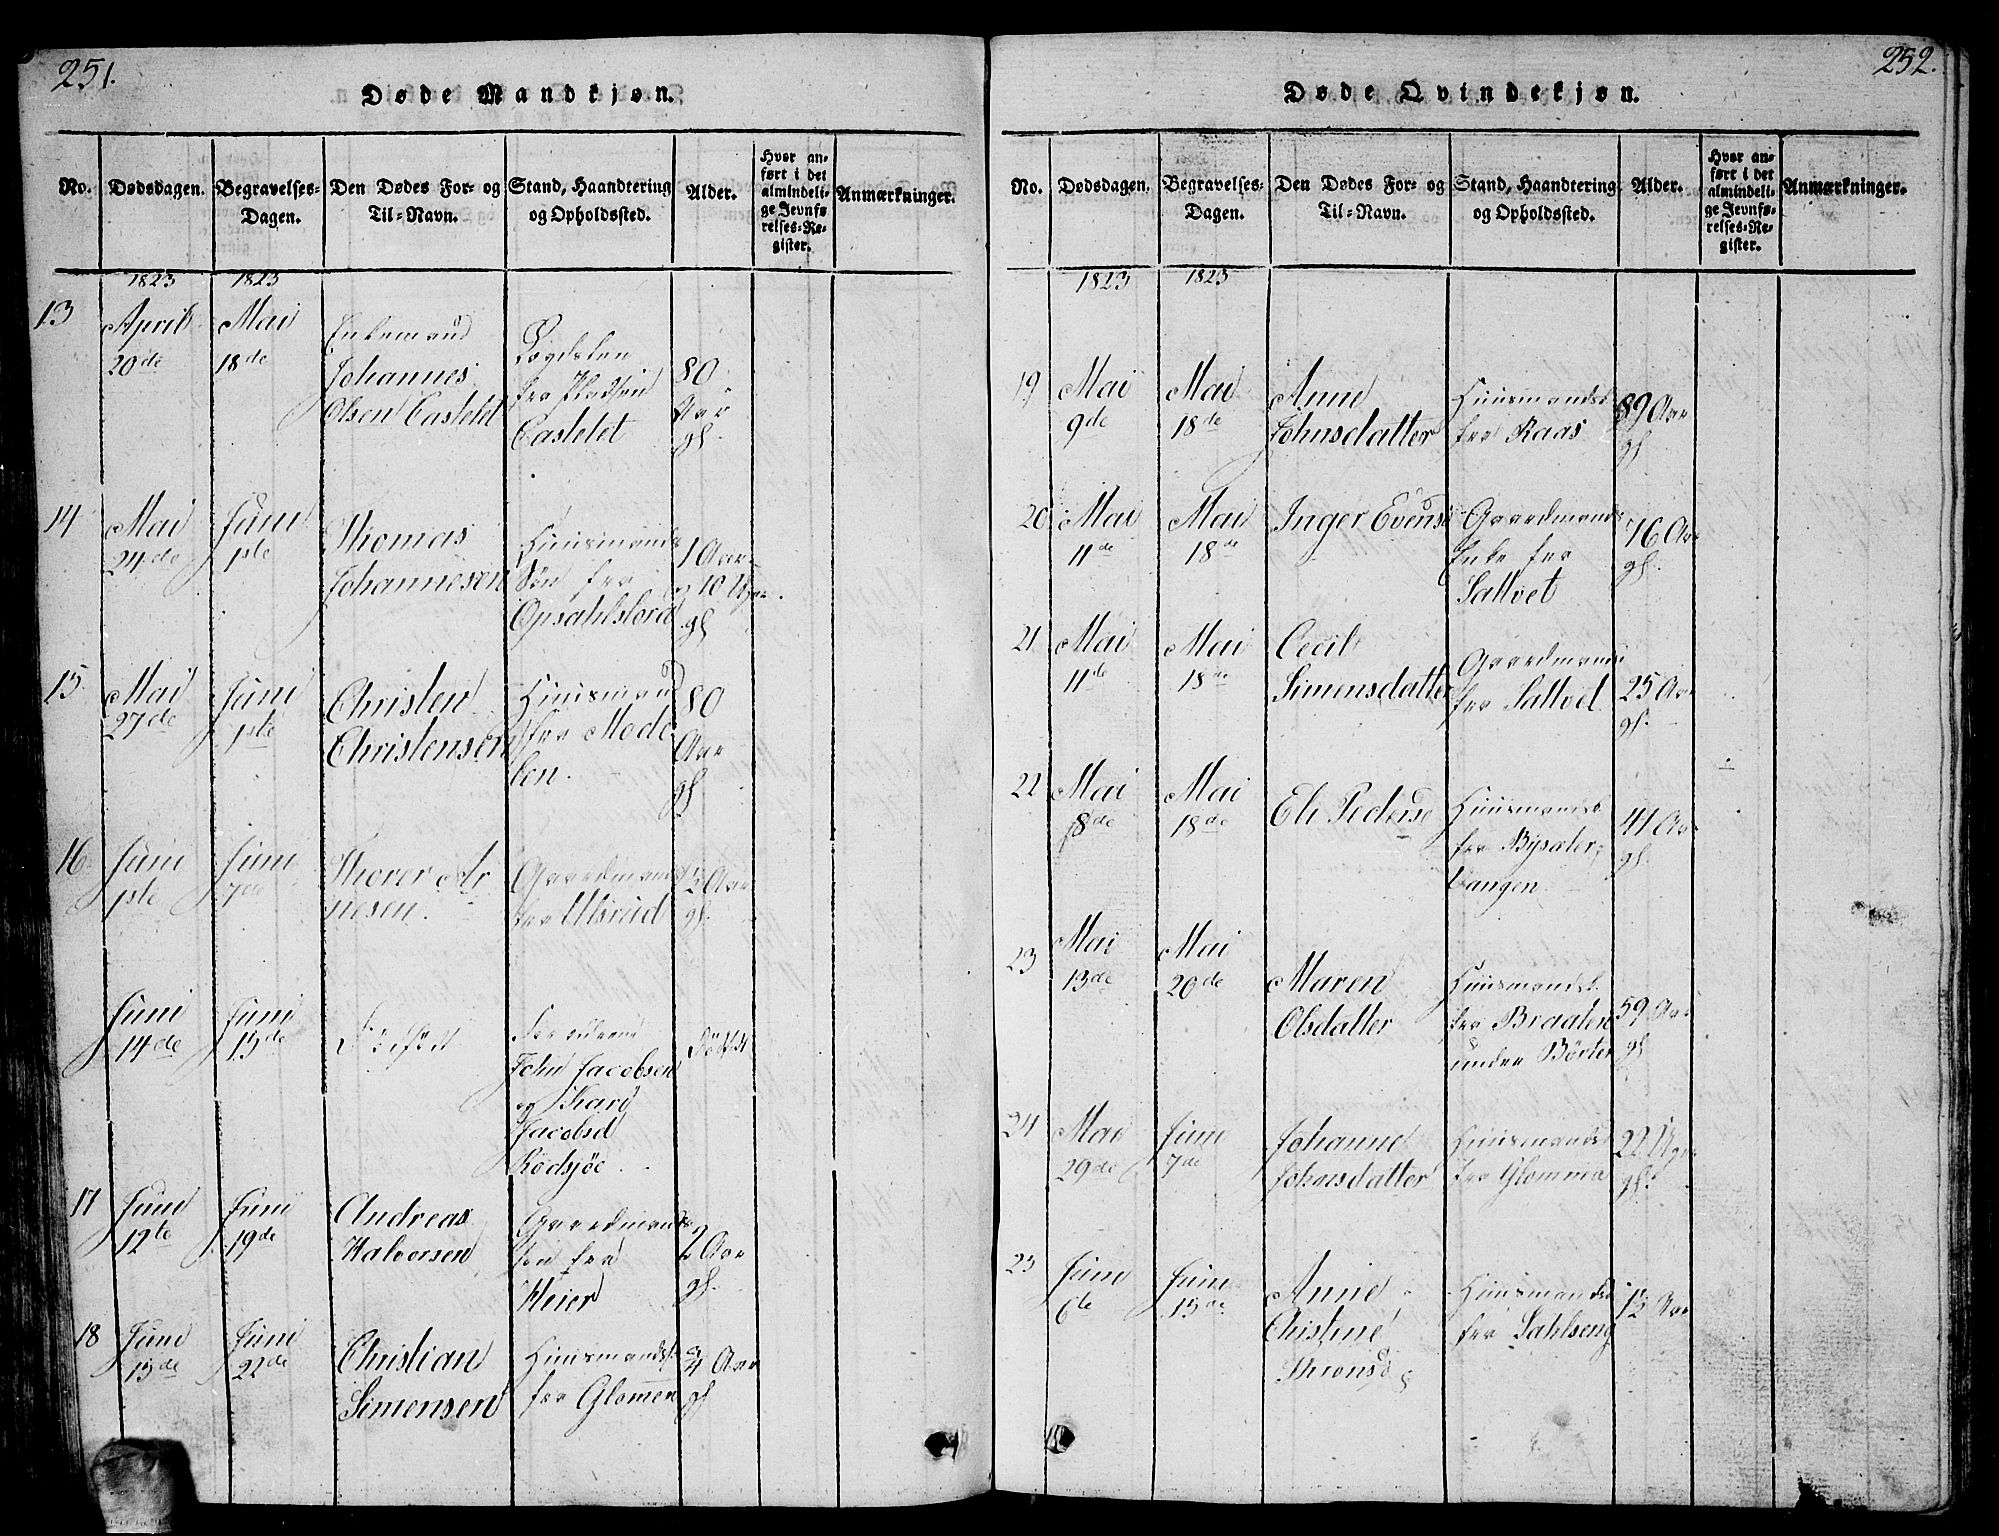 251.
Døde Mandkjøn.
No.
Dødsdagen.
Begravelses-
Dagen.
Den Dødes For- og
Til-Navn.
Stand, Haandtering
og Opholdssted.
Alder.
Hvor an-
ført i det
almindeli-
ge Jevnfø-
relses-Re-
gister.
Anmærkninger.
1823
1823
13
April
20de
Mai
18de
Enkemand
Johannes
Olsen Castelet
Lægdslem
fra Pladsen
Castelet
80
Aar
gl
14
Mai
24de
Juni
1ste
Thomas
Johannesen
Huusmands
Søn fra
Opsahlstorp
1 Aar
og 10 Uger
gl
15
Mai
27de
Juni
1ste
Christen
Christensen
Huusmand
fra Mode
ben.
80
Aar
gl
16
Juni
1ste
Juni
7de
Thorer Ar
nesen.
Gaardmand
fra Ulsrud
Aar
gl.
Juni
14de
Juni
15de
Forældrene
John Jacobsen
og Kari
Jacobsd
Rødsjøe
Dødfødt
17
Juni
12te
Juni
19de
Andreas
Halvorsen
Gaardmands
søn fra
Heier
2 Aar
gl.
18
Juni
15de
Juni
22de
Christian
Simensen
Huusmandss.
fra Glommen
3/4 Aar
gl
252.
Døde Qvindekjøn.
No.
Dødsdagen.
Begravelses-
Dagen.
Den Dødes For- og
Til-Navn.
Stand, Haandtering
og Opholdssted.
Alder.
Hvor an-
ført i det
almindeli-
ge Jevnfø-
relses-Re-
gister.
Anmærkninger.
1823
1823
19
Mai
9de
Mai
18de
Anne
Johnsdatter
Huusmands
fra Raas
89 Aar
gl
20
Mai
11de
Mai
18de
Inger Evensd
Gaardmands
Enke fra
Saltvet
76 Aar
gl.
21
Mai
11de
Mai
18de
Cecil
Simensdatter
Gaardmands
fra Saltvet
25 Aar
gl.
22
Mai
8de
Mai
18de
Eli Pedersd
Huusmandsk
fra Bysæter-
vangen.
41 Aar
gl.
23
Mai
13de
Mai
20de
Maren
Olsdatter
Huusmandsk.
fra Braaten
under Børter
59 Aar
gl
24
Mai
29de
Juni
7de
Johanne
Johnsdatter
Huusmandsd
fra Glomma
22 Uger
gl.
25
Juni
6de
Juni
15de
Anne
Christine
Thronsd
Huusmandsd
fra Sahlseng
Aar